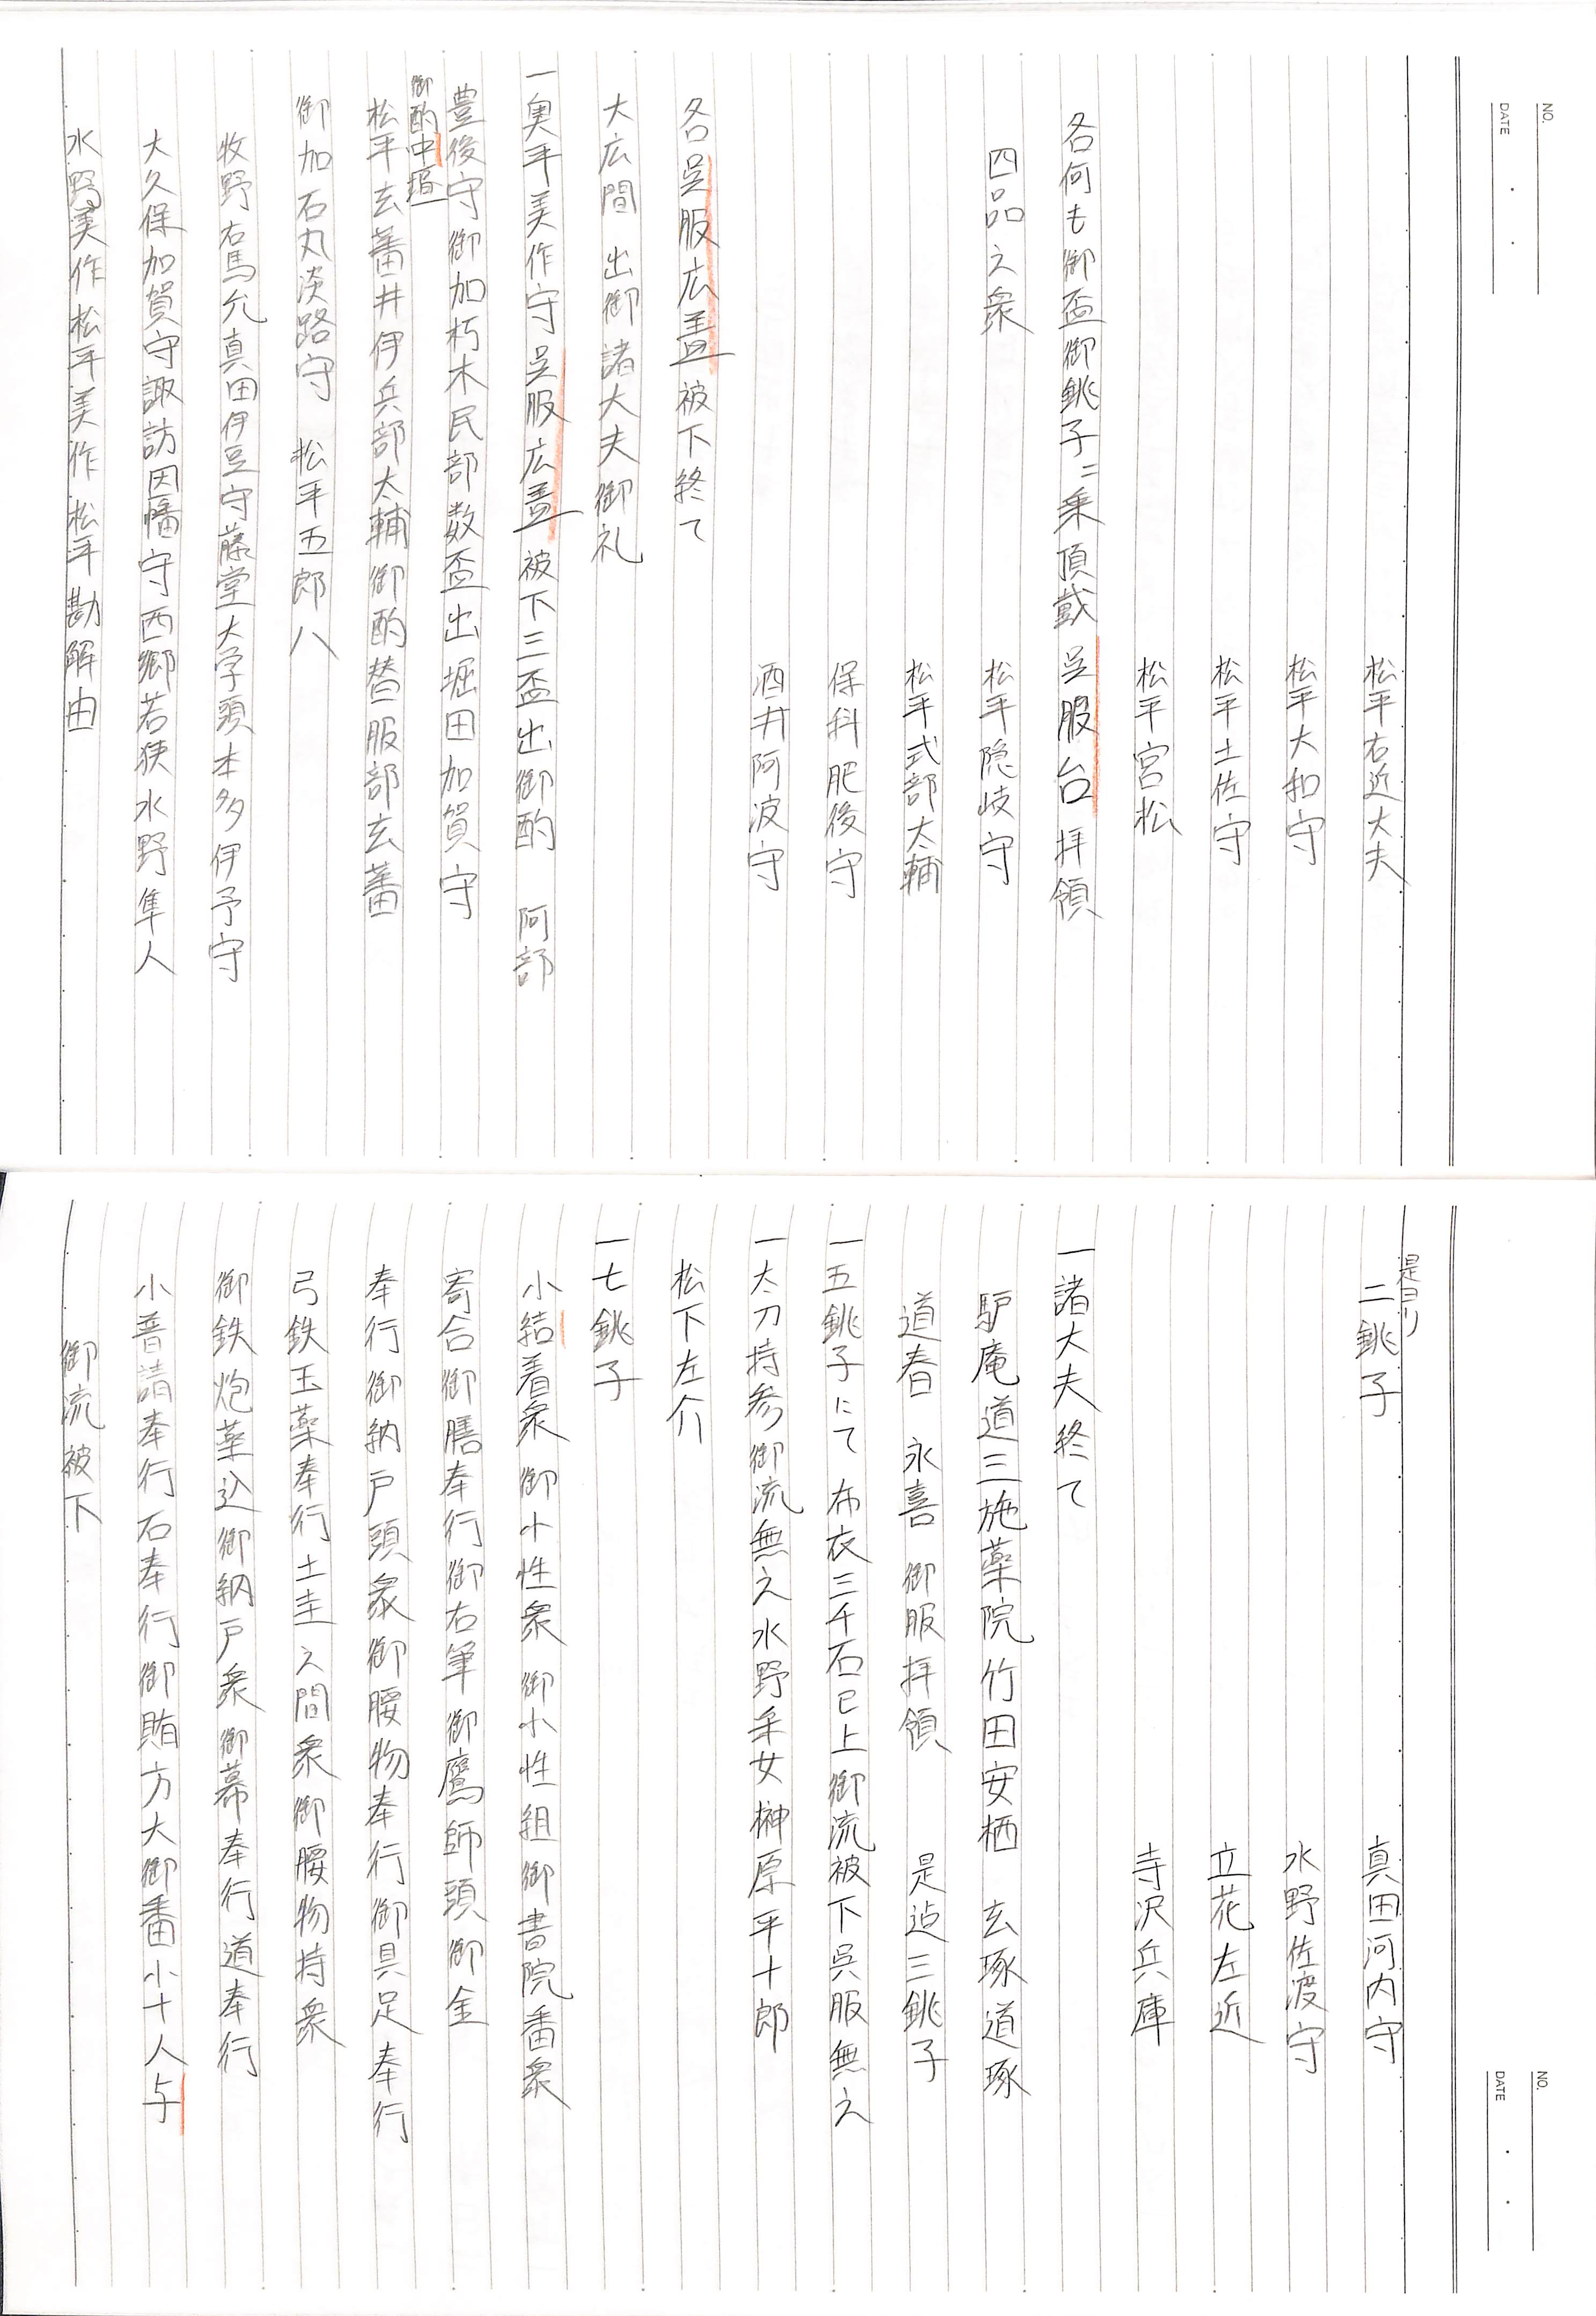 NO.
DATE
松平右近大夫
松平大和守
松平土佐守
松平宮松
各何も御盃御銚子ニ乗頂戴呉服台拝領
四品之衆 松平隠岐守
松平式部太輔
保科肥後守
酒井阿波守
各呉服広蓋被下終て
大広間出御諸大夫御礼
一奥平美作守呉服広蓋被下三盃出御酌 阿部
豊後守御加朽木民部数盃出堀田加賀守
御酌中垣
松平玄蕃井伊兵部太輔御酌替服部玄蕃
御加石丸淡路守 松平五郎八
牧野右馬允真田伊豆守藤堂大学頭本多伊予守
大久保加賀守諏訪因幡守西郷若狭水野隼人
水野美作松平美作松平勘解由
NO.
DATE
是ヨリ
二銚子 真田河内守
水野佐渡守
立花左近
寺沢兵庫
一諸大夫終て
驢庵道三施薬院竹田安栖 玄琢道琢
道春 永喜 御服拝領 是迠三銚子
一五銚子にて布衣三千石已上御流被下呉服無之
一太刀持参御流無之水野采女榊原平十郎
松下左介
一七銚子
小結着衆御小性衆御小性組御書院番衆
寄合御膳奉行御右筆御鷹師頭御金
奉行御納戸頭衆御腰物奉行御具足奉行
弓鉄玉薬奉行土圭之間衆御腰物持衆
御鉄炮薬込御納戸衆御幕奉行道奉行
小普請奉行石奉行御賄方大御番小十人与
御流被下